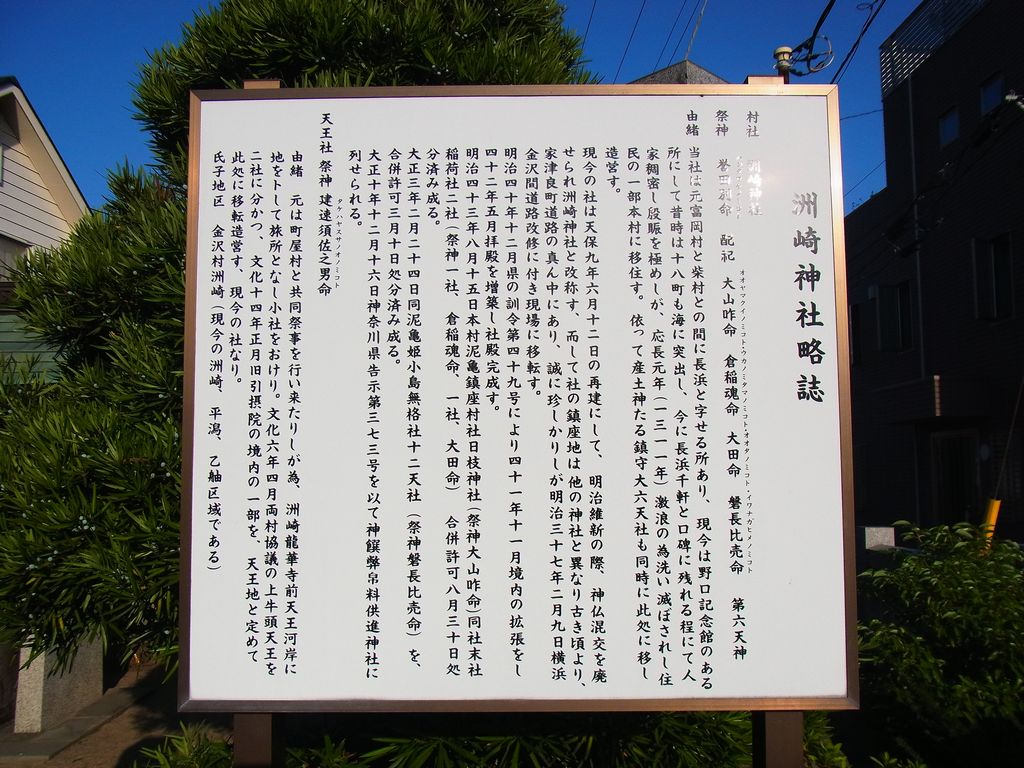 洲崎神社略誌
村社 洲崎神社
祭神 誉田別命 配祀 大山咋命 倉稲魂命 大田命 磐長比売命 第六天神
オオヤマクイノミコト・ウカノミタマノミコト・オオタノミコト・イワナガヒメノミコト
由緒 当社は元富岡村と柴村との間に長浜と字せる所あり、現今は野口記念館のある
所にして昔時は十八町も海に突出し、今に長浜千軒と口碑に残れる程にて人
家稠密し殷賑を極めしが、応長元年(一三一一年)激浪の為洗い滅ぼされし住
民の一部本村に移住す。依って産土神たる鎮守大六天社も同時に此処に移し
造営す。
現今の社は天保九年六月十二日の再建にして、明治維新の際、神仏混交を廃
せられ洲崎神社と改称す、而して社の鎮座地は他の神社と異なり古き頃より、
家津良町道路の真ん中にあり、誠に珍しかりしが明治三十七年二月九日横浜
金沢間道路改修に付き現場に移転す。
明治四十年十二月県の訓令第四十九号により四十一年十一月境内の拡張をし
四十二年五月拝殿を増築し社殿完成す。
明治四十三年八月十五日本村泥亀鎮座村社日枝神社(祭神大山咋命)同社末社
稲荷社二社(祭神一社、倉稲魂命、一社、大田命) 合併許可八月三十日処
分済み成る。
大正三年二月二十四日同泥亀姫小島無格社十二天社(祭神磐長比売命)を、
合併許可三月十日処分済み成る。
大正十年十二月十六日神奈川県告示第三七三号を以て神饌幣帛料供進神社に
列せられる。
天王社 祭神 建速須佐之男命
タケハヤスサノオノミコト
由緒 元は町屋村と共同祭事を行い来たりしが為、洲崎龍華寺前天王河岸に
地をトして旅所となし小社をおけり。文化六年四月両村協議の上牛頭天王を
二社に分かつ、文化十四年正月旧引摂院の境内の一部を、天王地と定めて
此処に移転造営す、現今の社なり。
氏子地区 金沢村洲崎(現今の洲崎、平潟、乙舳区域である)